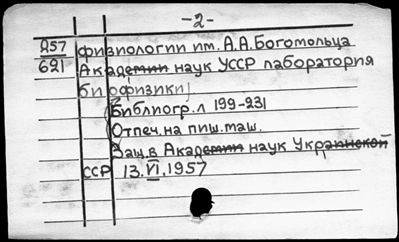 -2-
Д57 физиологии им. А.А.Богомольца
621 Академии наук УССР лаборатория
биофизики]
Библиогр. л 199-231
Отпеч. на пиш. маш.
Защ. в Академии наук Украинской
ССР 13.VI.1957